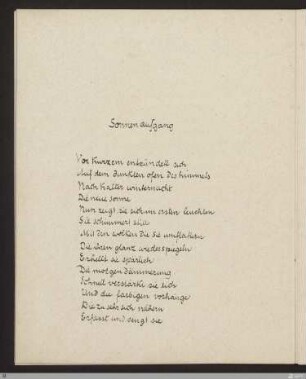 Sonnenaufgang
Vor kurzem entzündete sich
Auf dem dunklen ofen des himmels
Nach kalter winternacht
Die neue sonne
Nun zeigt sie sich im ersten leuchten
Sie schimmert still
Mit den wolken die sie umflackern
Die ihren glanz wiederspiegeln
Erhellt sie spärlich
Die morgendämmerung
Schnell verstärkt sie sich
Und die lässigen vorhänge
Die zu sehr sich nähern
Erfasst und sengt sie